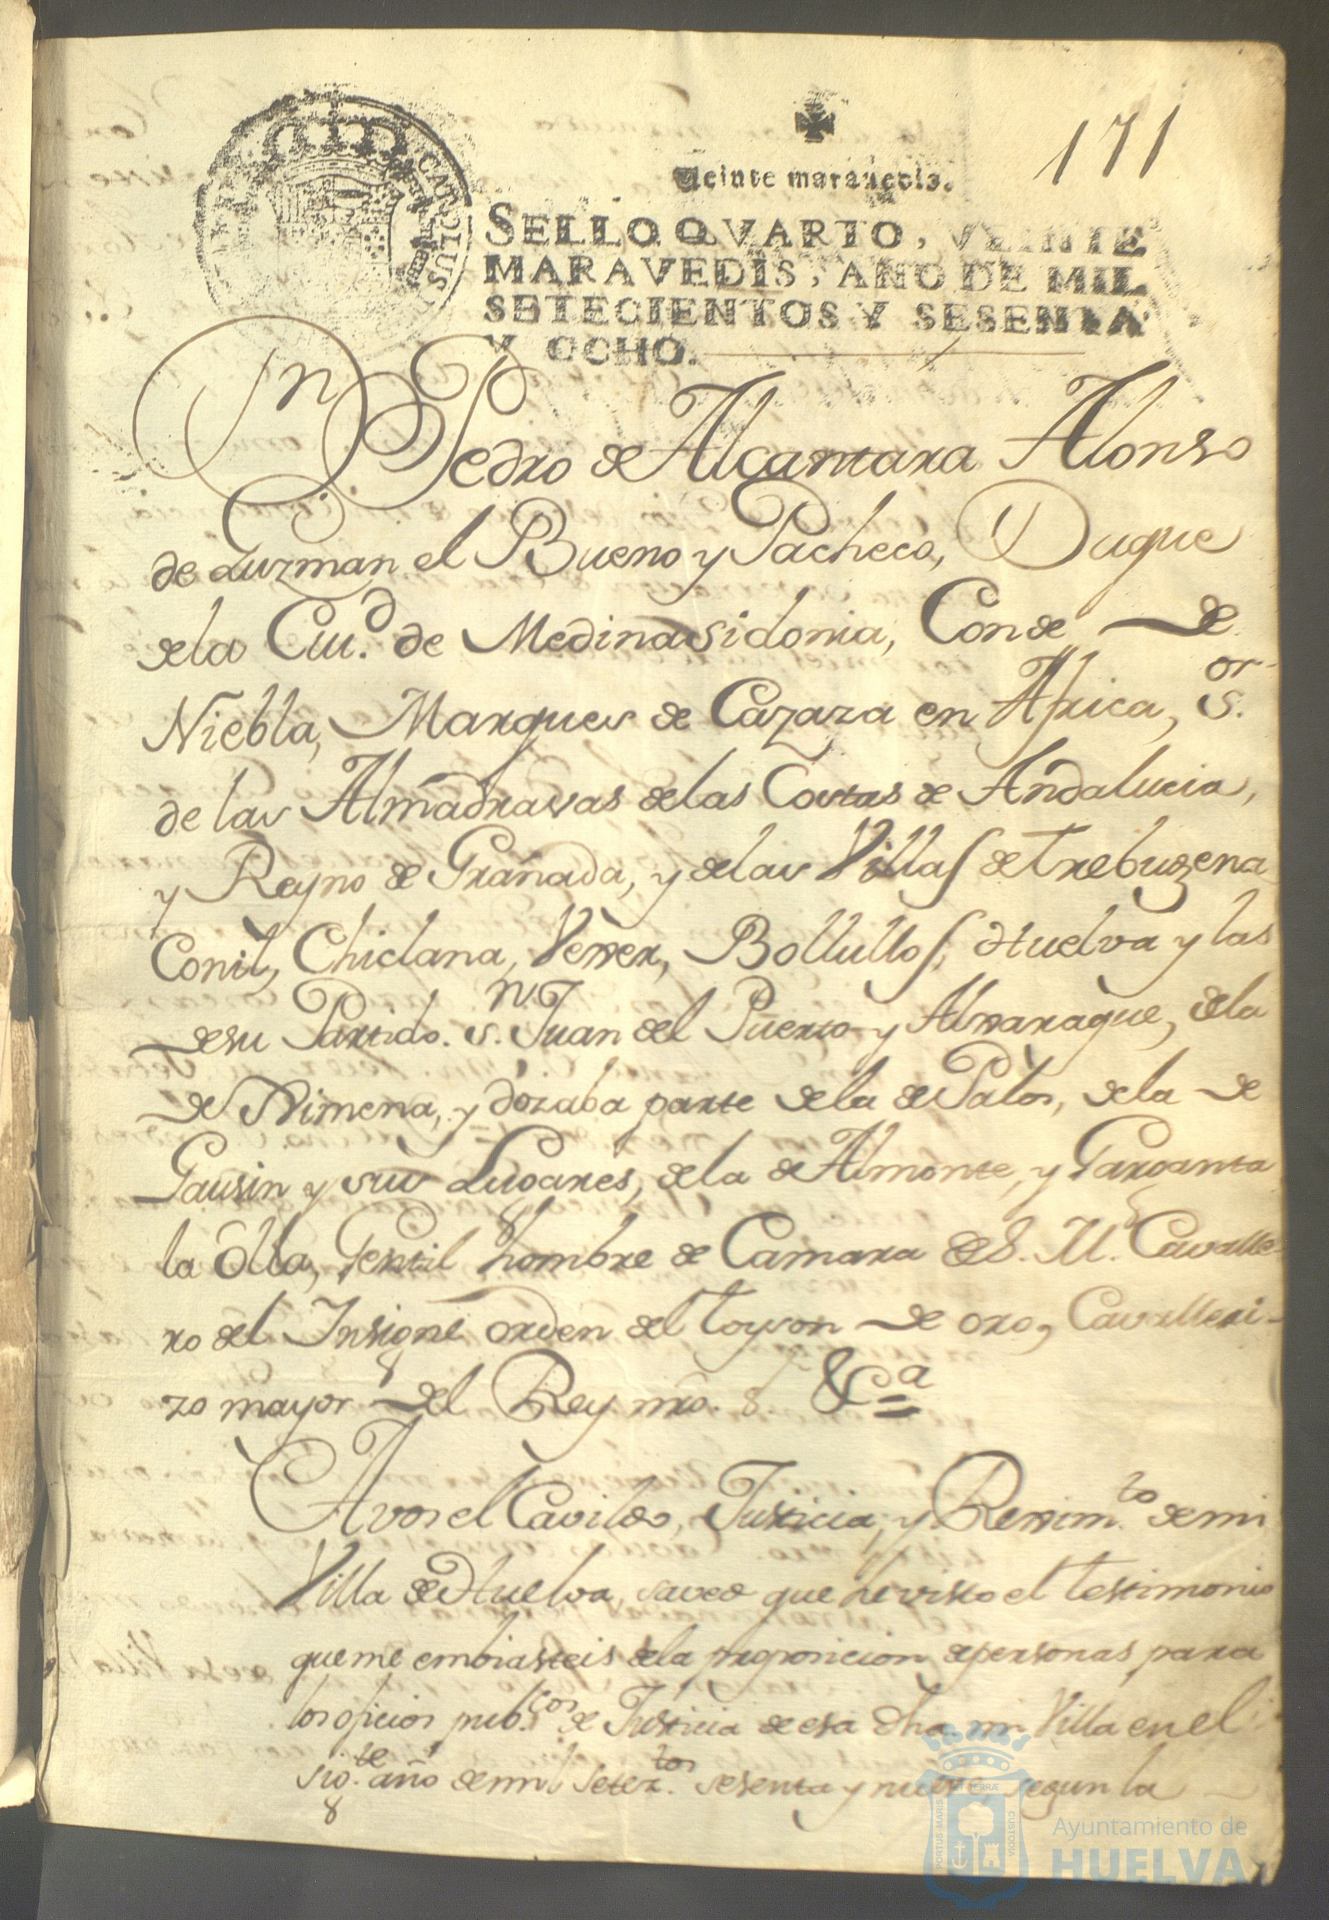 171
Veinte maravedis.
SELLO QVARTO, VEINTE
MARAVEDIS, AÑO DE MIL
SETECIENTOS Y SESENTA
Y OCHO.
CAROLUS
Dn Pedro de Alcantara Alonso
de Guzman el Bueno y Pacheco, Duque
dela Ciu.d de Medinasidonia, Conde de
Niebla, Marques de Cazaza en Africa, s.or
de las Almadravas delas Costas de Andalucia,
y Reyno de Granada, y delas Villas de Trebuxena
Conil, Chiclana, Vexer, Bollullos, Huelva y las
desu Partido. s.n Juan del Puerto y Alxaraque, dela
de Ximena, y dozaba parte dela de Palos, dela de
Gausin y sus Lugares, dela de Almonte, y Garganta
la olla, Gentil hombre de Camara de S. M. Cavalle-
ro del Insigne orden del Toyson de oro, Cavalleri-
zo mayor del Rey nro. s. &ca
A vos el Cavildo, Justicia, y Rexim.to de mi
Villa de Huelva, saved que he visto el testimonio
que me embiasteis dela proposicion de personas para
los oficios pub.cos de Justicia de esa dha mi Villa en el
sig.te año de mil setez.tos sesenta y nueve, segun la
PORTUS MARIS ET TERRÆ CUSTODIA
Ayuntamiento de
HUELVA